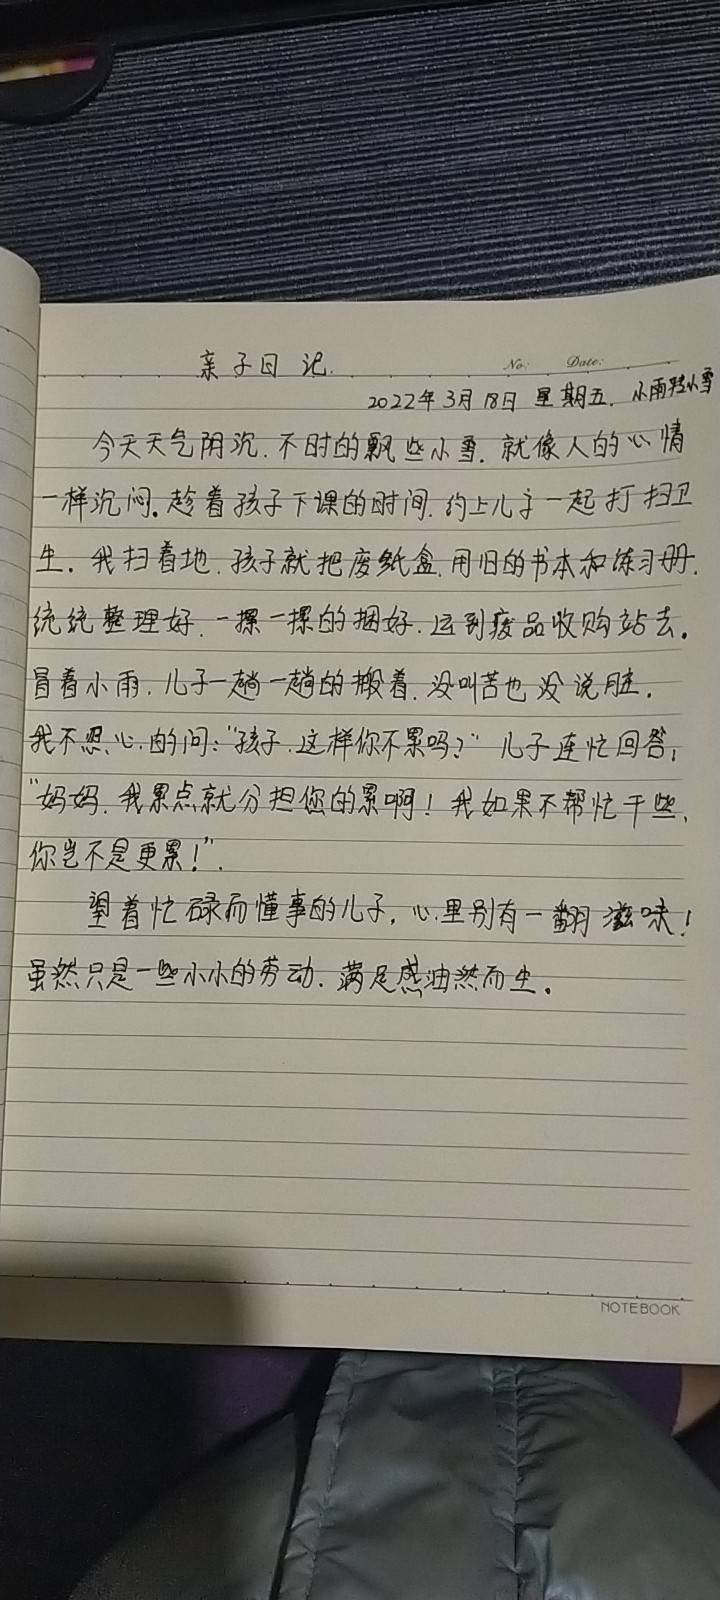 亲子日记.
No: Date:
2022年3月18日 星期五. 小雨转小雪
今天天气阴沉.不时的飘些小雪.就像人的心情
一样沉闷。趁着孩子下课的时间.约上儿子一起打扫卫
生.我扫着地.孩子就把废纸盒.用旧的书本和练习册.
统统整理好.一摞一摞的捆好.运到废品收购站去。
冒着小雨.儿子一趟一趟的搬着.没叫苦也没说脏.
我不忍心的问:“孩子.这样你不累吗?”儿子连忙回答;
“妈妈.我累点就分担您的累啊!我如果不帮忙干些、
你岂不是更累!”.
望着忙碌而懂事的儿子,心里别有一翻滋味!
虽然只是一些小小的劳动.满足感油然而生。
NOTEBOOK